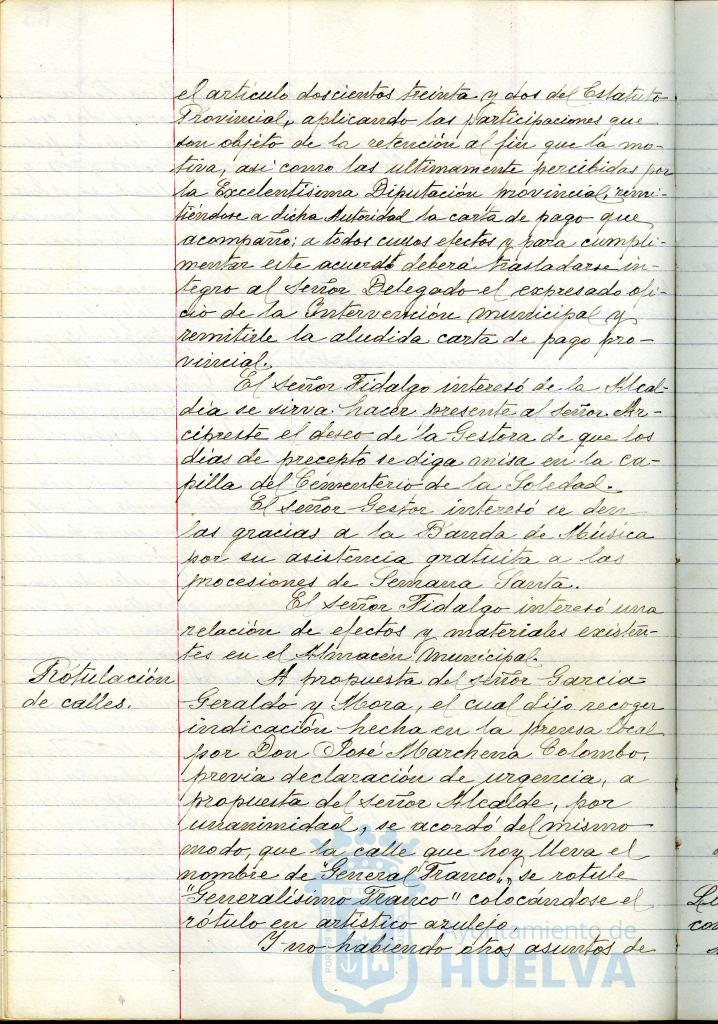 el artículo doscientos treinta y dos del Estatuto
Provincial, aplicando las participaciones que
son objeto de la retención al fin que la mo-
tiva, asi como las ultimamente percibidas por
la Excelentisima Diputación provincial, remi-
tiéndose a dicha Autoridad la carta de pago que
acompaño; a todos cuyos efectos y para cumpli-
mentar este acuerdo deberá trasladarse in-
tegro al Señor Delegado el expresado ofi-
cio de la Intervención municipal y
remitirle la aludida carta de pago pro-
vincial.
El señor Fidalgo interesó de la Alcal-
dia se sirva hacer presente al señor Ar-
cipreste el deseo de la Gestora de que los
días de precepto se diga misa en la ca-
pilla del Cementerio de la Soledad.
El señor Gestor interesó se den
las gracias a la Banda de Música
por su asistencia gratuita a las
procesiones de Semana Santa.
El señor Fidalgo interesó una
relación de efectos y materiales existen-
tes en el Almacén municipal.
Rotulación
de calles.
A propuesta del señor Garcia
Geraldo y Mora, el cual dijo recoger
indicación hecha en la prensa local
por Don José Marchena Colombo,
previa declaración de urgencia, a
propuesta del señor Alcalde, por
unanimidad, se acordó del mismo
modo, que la calle que hoy lleva el
nombre de "General Franco", se rotule
"Generalísimo Franco" colocándose el
rótulo en artistico azulejo.
Y no habiendo otros asuntos de
Ayuntamiento de
HUELVA